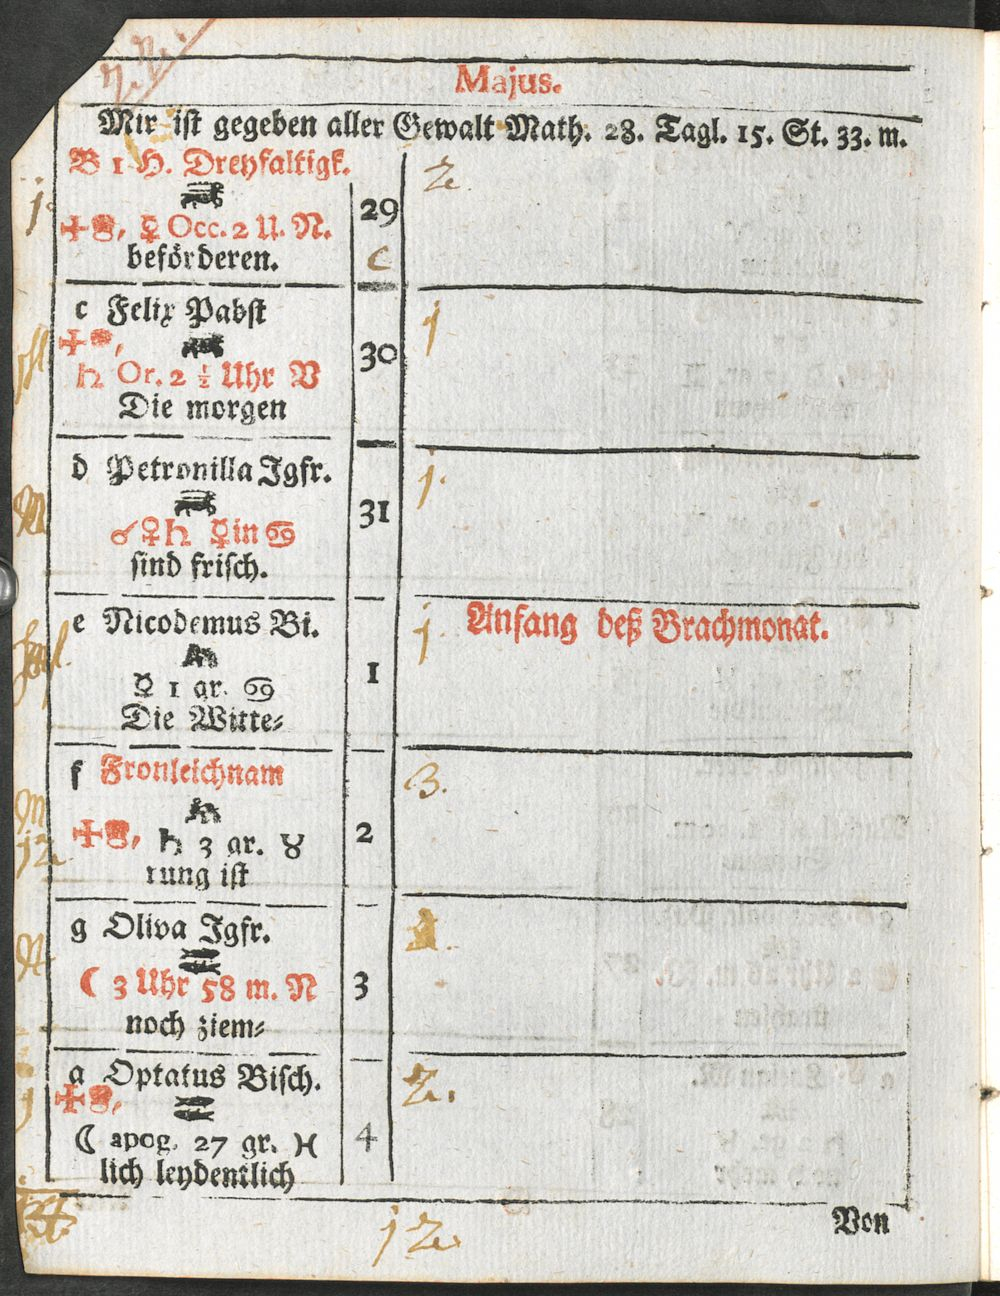 Majus.
Mir ist gegeben aller Gewalt Math. 28. Tagl. 15. St. 33. m.
B 1 H. Dreyfaltigk.
29
☿ Occ. 2 U. N.
beförderen.
c
2.
c Felix Pabst
30
♄ Or. 2 ½ Uhr V
Die morgen
j
d Petronilla Jgfr.
31
☌♀♄ ☿ in ♋
sind frisch.
j.
e Nicodemus Bi.
1
☿ 1 gr. ♋
Die Witte⸗
j.
Anfang deß Brachmonat.
f Fronleichnam
2
♄ 3 gr. ♉
rung ist
3.
g Oliva Jgfr.
3
☾ 3 Uhr 58 m. N
noch ziem⸗
a Optatus Bisch.
4
☾ apog. 27 gr. ♓
lich leydentlich
2.
Von
12.